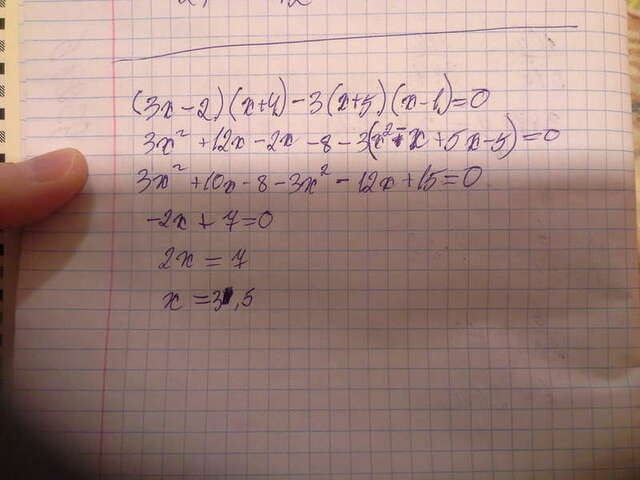 (3x-2)(x+4)-3(x+5)(x-1)=0
3x²+12x-2x-8-3(x²-x+5x-5)=0
3x²+10x-8-3x²-12x+15=0
-2x+7=0
2x=7
x=3,5